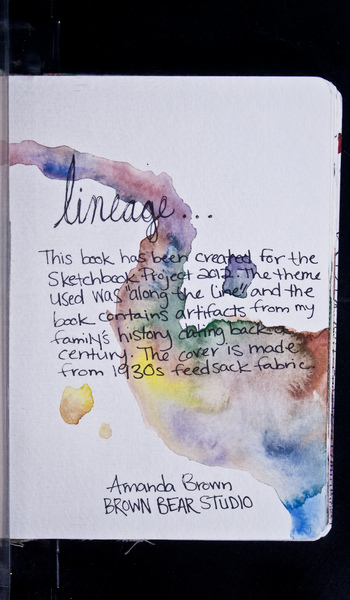 lineage...
This book has been created for the
Sketchbook Project 2012. The theme
used was "along the line" and the
book contains artifacts from my
family's history dating back a
century. The cover is made
from 1930s feedsack fabric.
Amanda Brown
BROWN BEAR STUDIO